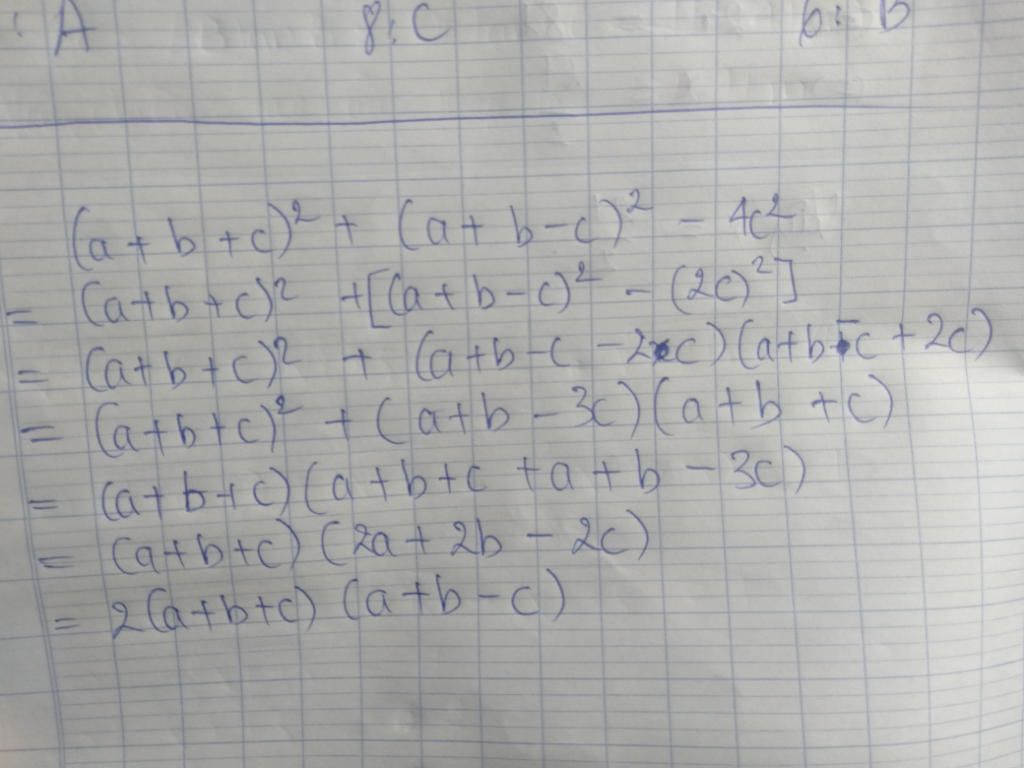 : A 8: C 6: B
(a + b + c)² + (a + b - c)² - 4c²
= (a+b+c)² + [(a+b-c)² - (2c)²]
= (a+b+c)² + (a+b-c-2c)(a+b-c+2c)
= (a+b+c)² + (a+b-3c)(a+b+c)
= (a+b+c)(a+b+c+a+b-3c)
= (a+b+c)(2a+2b-2c)
= 2(a+b+c)(a+b-c)